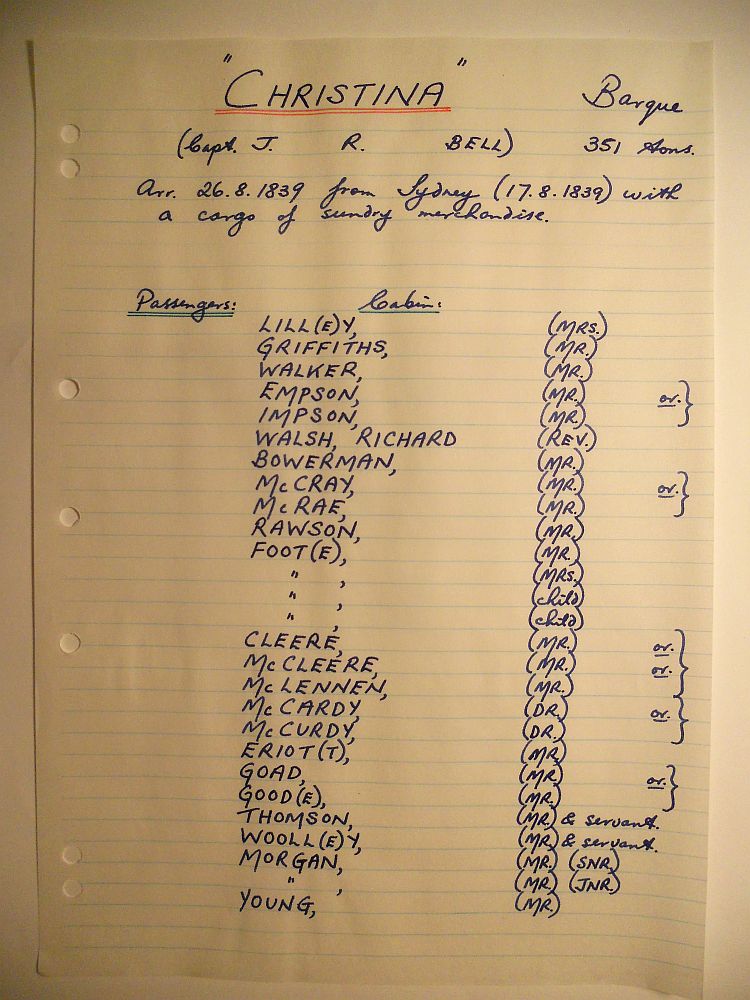 "CHRISTINA" Barque
(Capt. J. R. BELL) 351 tons.
Arr. 26.8.1839 from Sydney (17.8.1839) with
a cargo of sundry merchandise.
Passengers: Cabin:
LILL(E)Y, (MRS.)
GRIFFITHS, (MR.)
WALKER, (MR.)
EMPSON, (MR.) or. }
IMPSON, (MR.)
WALSH, RICHARD (REV.)
BOWERMAN, (MR.)
McCRAY, (MR.) or. }
McRAE, (MR.)
RAWSON, (MR.)
FOOT(E), (MR.)
" , (MRS.)
" , (child)
" , (child)
CLEERE, (MR.) or.
McCLEERE, (MR.) or. }
McLENNEN, (MR.)
McCARDY, (DR.) or. }
McCURDY, (DR.)
ERIOT(T), (MR.)
GOAD, (MR.) or. }
GOOD(E), (MR.)
THOMSON, (MR.) & servant.
WOOLL(E)Y, (MR.) & servant.
MORGAN, (MR.) (SNR.)
" , (MR.) (JNR.)
YOUNG, (MR.)